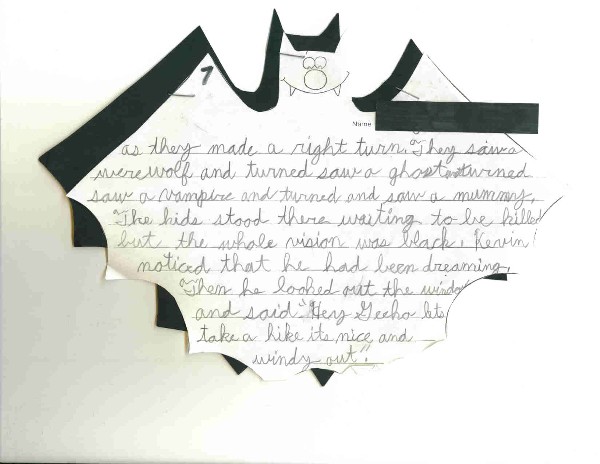 7
Name
as they made a right turn. They saw a
werewolf and turned saw a ghost and turned
saw a vampire and turned and saw a mummy.
The kids stood there waiting to be killed
but the whole vision was black. Kevin
noticed that he had been dreaming.
Then he looked out the window
and said "Hey Gecho lets
take a hike its nice and
windy out".